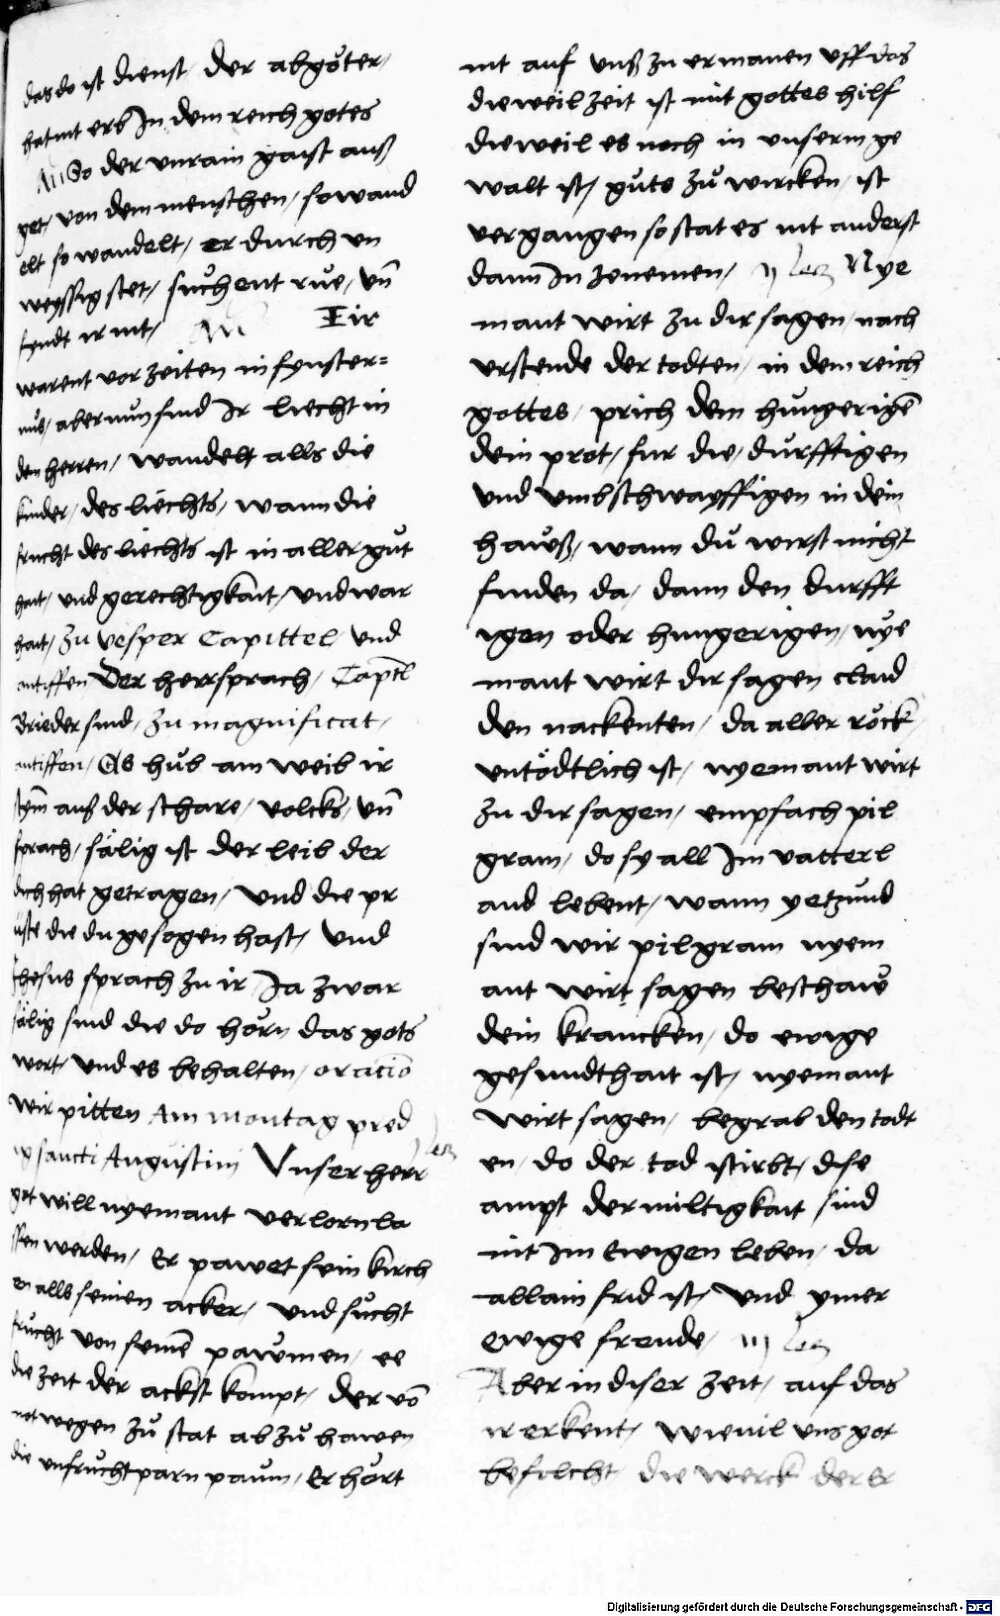 das do ist dienst / der abgöter /
hat nit erb In dem reich gotes
An So der vnrain gaist auß
get / von dem menschen / so wand
elt so wandelt / er durch vn
weyssig stet / suchent rue / vn̄
fyndt ir nit / An Eir
warent vor zeiten in fynster=
nůs / aber nun sind Ir liecht in
dem herren / wandelt alls die
kinder / des liechts / wann die
frucht des liechts ist in aller gůt
hait / vnd gerechtigkait / vnd war
hait / zu vesper Capittel / vnd
antiffen Der herr sprach / Captl
Brieder sind / zu magnificat /
antiffen / Es hůb am weib ir
stym auß der schare / volcks / vn̄
sprach / sälig ist der leib der
dich hat getragen / vnd die pr
üste die du gesogen hast / vnd
Jhesus sprach zu ir Ja zwar
sälig sind die do hörn das gots
wort / vnd es behalten / oracio
wir pitten Am montag pred
ig sancti Augustini Vnser herr lec
got will nyemant verlorn la
ssen werden / Er pawet sein kirch
en alls seinen acker / vnd sůcht
frůcht von seinē pawmen / ee
die zeit der ackst kompt / der vō
not wegen zů stat abzů hawen
die vnfrůchtparn paum / Er hört
nit auf vnß zu ermanen vff das
die weil zeit ist mit gottes hilf
die weil es noch in vnserm ge
walt ist / gůts zů wircken / ist
vergangen so stat es nit anderst
dann In Jenemen / ij lec Nye
mant wirt zu dir sagen / nach
vrstende der todten / in dem reich
gottes / prich dem hungerigē
dein prot / fur die / důrfftigen
vnd vmbschwayffigen in dein
hawß / wann dů wirst nicht
finden da / dann den durfft
igen oder hungerigen / nye
mant wirt dir sagen claid
den nackenten / da alber röck
vntödtlich ist / nyemant wirt
zu dir sagen / empfach pil
gram / do sy all Im vatterl
and lebent / wann yetzund
sind wir pilgram nyem
ant wirt sagen beschaw
dein krancken / do ewige
gesundthait ist / nyemant
wirt sagen / begrab den todt
en / do der tod stirbt / dise
ampt der miltigkait sind
nit Im ewigen leben / da
allain frid ist / vnd ymer
ewige freude / iij lec
Aber in diser zeit / auf das
ir erkent / wieuil vns got
befilcht die werck der er
Digitalisierung gefördert durch die Deutsche Forschungsgemeinschaft - DFG